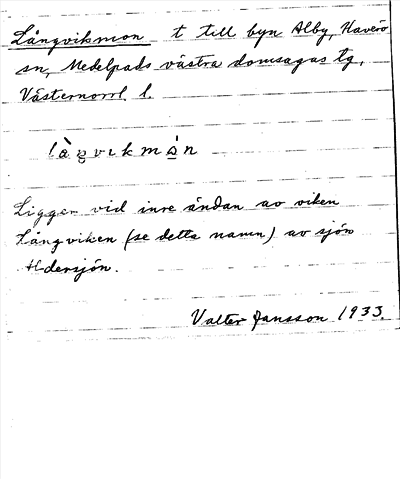 Långvikmon t till byn Alby, Haverö
sn, Medelpads västra domsagas tg,
Västernorrl. l.
Ligger vid inre ändan av viken
Långviken (se detta namn) av sjön
Holdersjön.
Valter Jansson 1933.